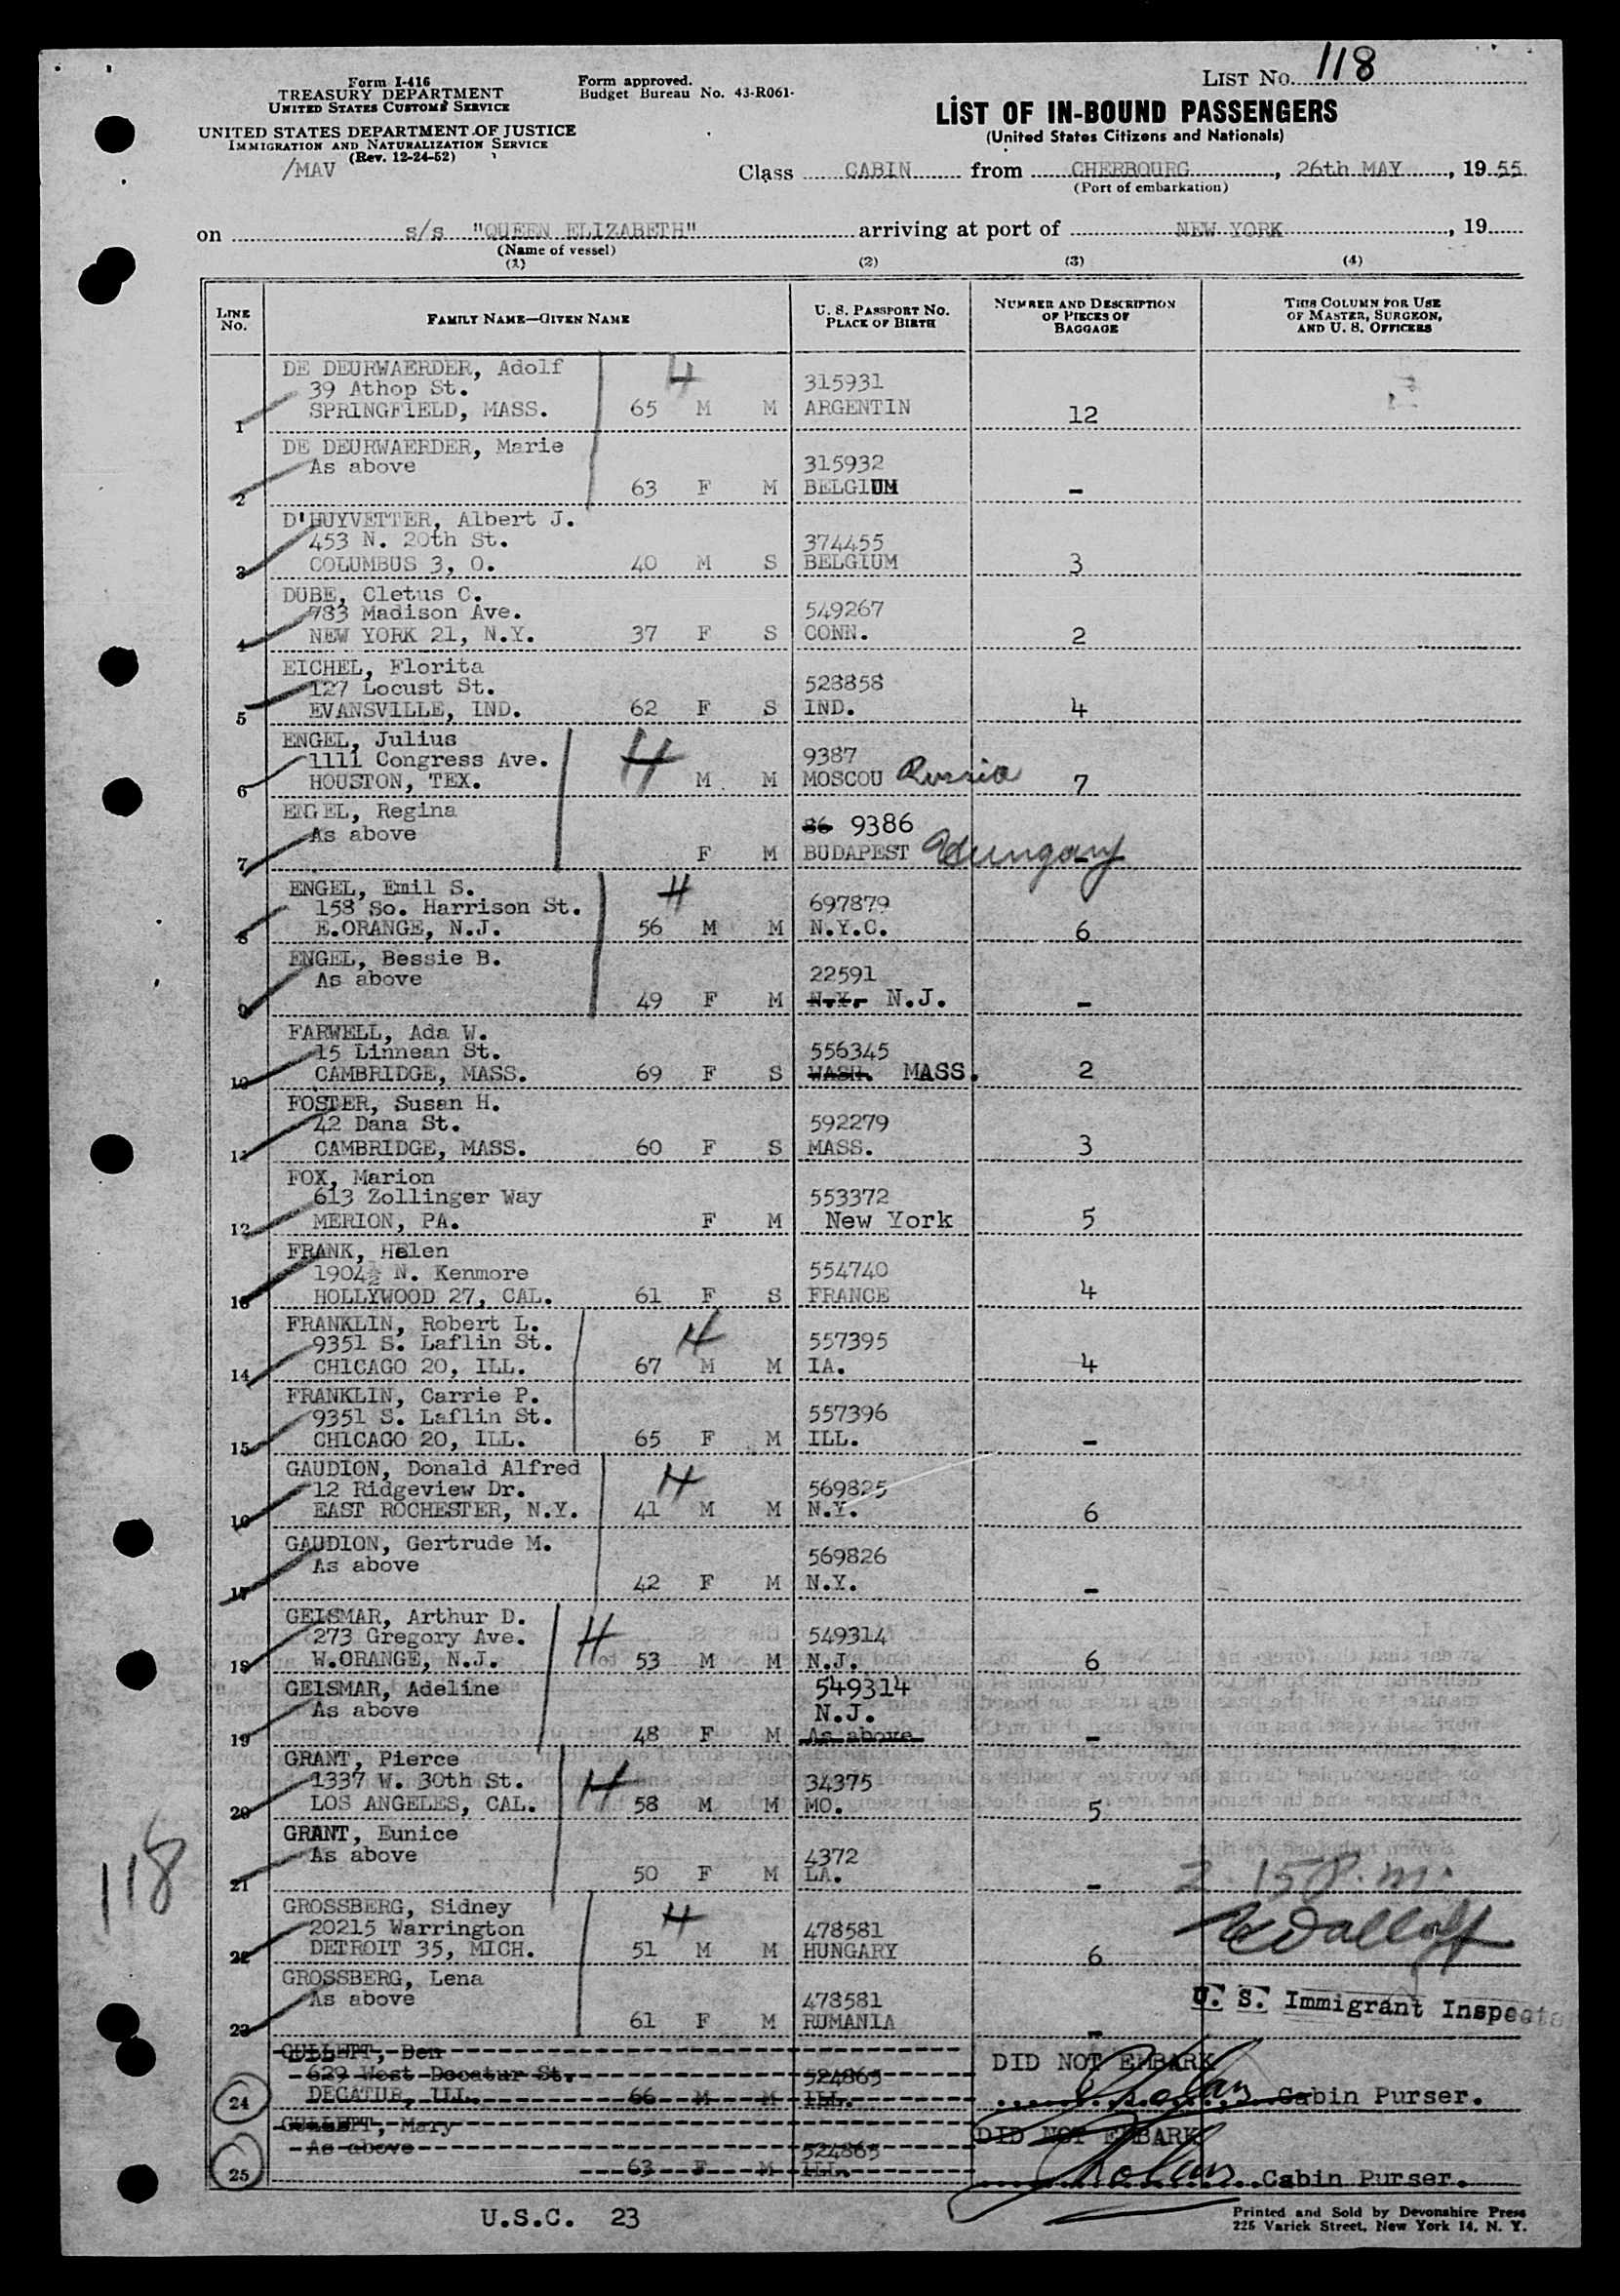 Form I-416
TREASURY DEPARTMENT
UNITED STATES CUSTOMS SERVICE
UNITED STATES DEPARTMENT OF JUSTICE
IMMIGRATION AND NATURALIZATION SERVICE
(Rev. 12-24-52)
/MAV
Form approved.
Budget Bureau No. 43-R061-
LIST No. 118
LIST OF IN-BOUND PASSENGERS
(United States Citizens and Nationals)
Class CABIN from CHERBOURG, 26th MAY, 19 55
(Port of embarkation)
on s/s "QUEEN ELIZABETH" arriving at port of NEW YORK, 19
(Name of vessel)
(1) (2) (3) (4)
LINE No. FAMILY NAME—GIVEN NAME U. S. PASSPORT No. PLACE OF BIRTH NUMBER AND DESCRIPTION OF PIECES OF BAGGAGE THIS COLUMN FOR USE OF MASTER, SURGEON, AND U. S. OFFICERS
DE DEURWAERDER, Adolf 4
39 Athop St. 315931
1 SPRINGFIELD, MASS. 65 M M ARGENTIN 12
DE DEURWAERDER, Marie
As above 315932
2 63 F M BELGIUM -
D'HUYVETTER, Albert J.
453 N. 20th St. 374455
3 COLUMBUS 3, O. 40 M S BELGIUM 3
DUBE, Cletus C.
783 Madison Ave. 549267
4 NEW YORK 21, N.Y. 37 F S CONN. 2
EICHEL, Florita
127 Locust St. 528858
5 EVANSVILLE, IND. 62 F S IND. 4
ENGEL, Julius 4
1111 Congress Ave. 9387
6 HOUSTON, TEX. M M MOSCOU Russia 7
ENGEL, Regina
As above 86 9386
7 F M BUDAPEST Hungary -
ENGEL, Emil S. 4
158 So. Harrison St. 697879
8 E.ORANGE, N.J. 56 M M N.Y.C. 6
ENGEL, Bessie B.
As above 22591
9 49 F M N.Y. N.J. -
FARWELL, Ada W.
15 Linnean St. 556345
10 CAMBRIDGE, MASS. 69 F S WASH. MASS. 2
FOSTER, Susan H.
42 Dana St. 592279
11 CAMBRIDGE, MASS. 60 F S MASS. 3
FOX, Marion
613 Zollinger Way 553372
12 MERION, PA. F M New York 5
FRANK, Helen
1904½ N. Kenmore 554740
13 HOLLYWOOD 27, CAL. 61 F S FRANCE 4
FRANKLIN, Robert L. 4
9351 S. Laflin St. 557395
14 CHICAGO 20, ILL. 67 M M IA. 4
FRANKLIN, Carrie P.
9351 S. Laflin St. 557396
15 CHICAGO 20, ILL. 65 F M ILL. -
GAUDION, Donald Alfred 4
12 Ridgeview Dr. 569825
16 EAST ROCHESTER, N.Y. 41 M M N.Y. 6
GAUDION, Gertrude M.
As above 569826
17 42 F M N.Y. -
GEISMAR, Arthur D. 4
273 Gregory Ave. 549314
18 W.ORANGE, N.J. 53 M M N.J. 6
GEISMAR, Adeline 549314
As above N.J.
19 48 F M As above -
GRANT, Pierce 4
1337 W. 30th St. 34375
20 LOS ANGELES, CAL. 58 M M MO. 5
GRANT, Eunice
As above 4372
21 50 F M LA. -
118
2.15 P.m.
GROSSBERG, Sidney 4
20215 Warrington 478581
22 DETROIT 35, MICH. 51 M M HUNGARY 6
GROSSBERG, Lena
As above 478581
U. S. Immigrant Inspecto
23 61 F M RUMANIA -
GULLETT, Ben
DID NOT EMBARK
629 West Decatur St. 524865
24 DECATUR, ILL. 66 M M ILL. Cabin Purser.
GULLETT, Mary
DID NOT EMBARK
As above 524865
25 63 F M ILL. Cabin Purser.
U.S.C. 23
Printed and Sold by Devonshire Press
225 Varick Street, New York 14, N. Y.